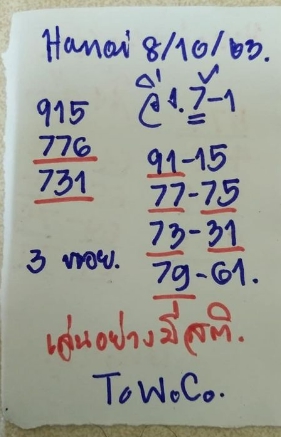 Hanoi 8/10/63.
915
776
731
วิ่ง. 7-1
91-15
77-75
73-31
79-61.
3 หอย.
เล่นอย่างมีสติ.
ToWoCo.